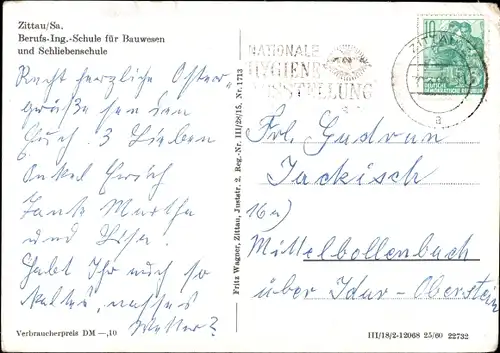 Zittau/Sa.
Berufs-Ing.-Schule für Bauwesen
und Schliebenschule
Recht herzliche Oster-
grüße senden
Euch 3 Lieben
Onkel Erich
Tante Martha
und
Habt Ihr auch so
kaltes, nasses
Wetter?
Verbraucherpreis DM —,10
Fritz Wagner, Zittau, Juststr. 2, Reg.-Nr. III/28/15, Nr. 1713
NATIONALE
HYGIENE
AUSSTELLUNG
ZITTAU
a
10
DEUTSCHE
DEMOKRATISCHE REPUBLIK
Frl. Gudrun
Jackisch
16a)
Mittelbollenbach
über Idar-Oberstein
III/18/2-12068 25/60 22732